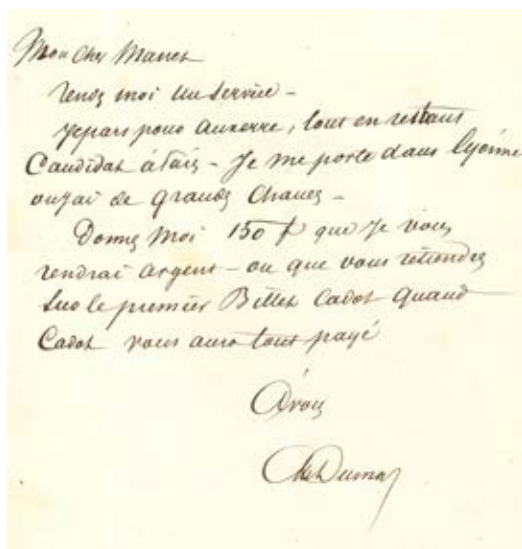 Mon cher Manet
rendez moi un service -
Je pars pour Auxerre, tout en restant
Candidat à Paris - Je me porte dans l'yonne
où j'ai de grandes chances -
Donnez moi 150 f que je vous
rendrai argent - ou que vous retiendrez
sur le premier Billet Cadot quand
Cadot vous aura tout payé
à vous
Alex Dumas